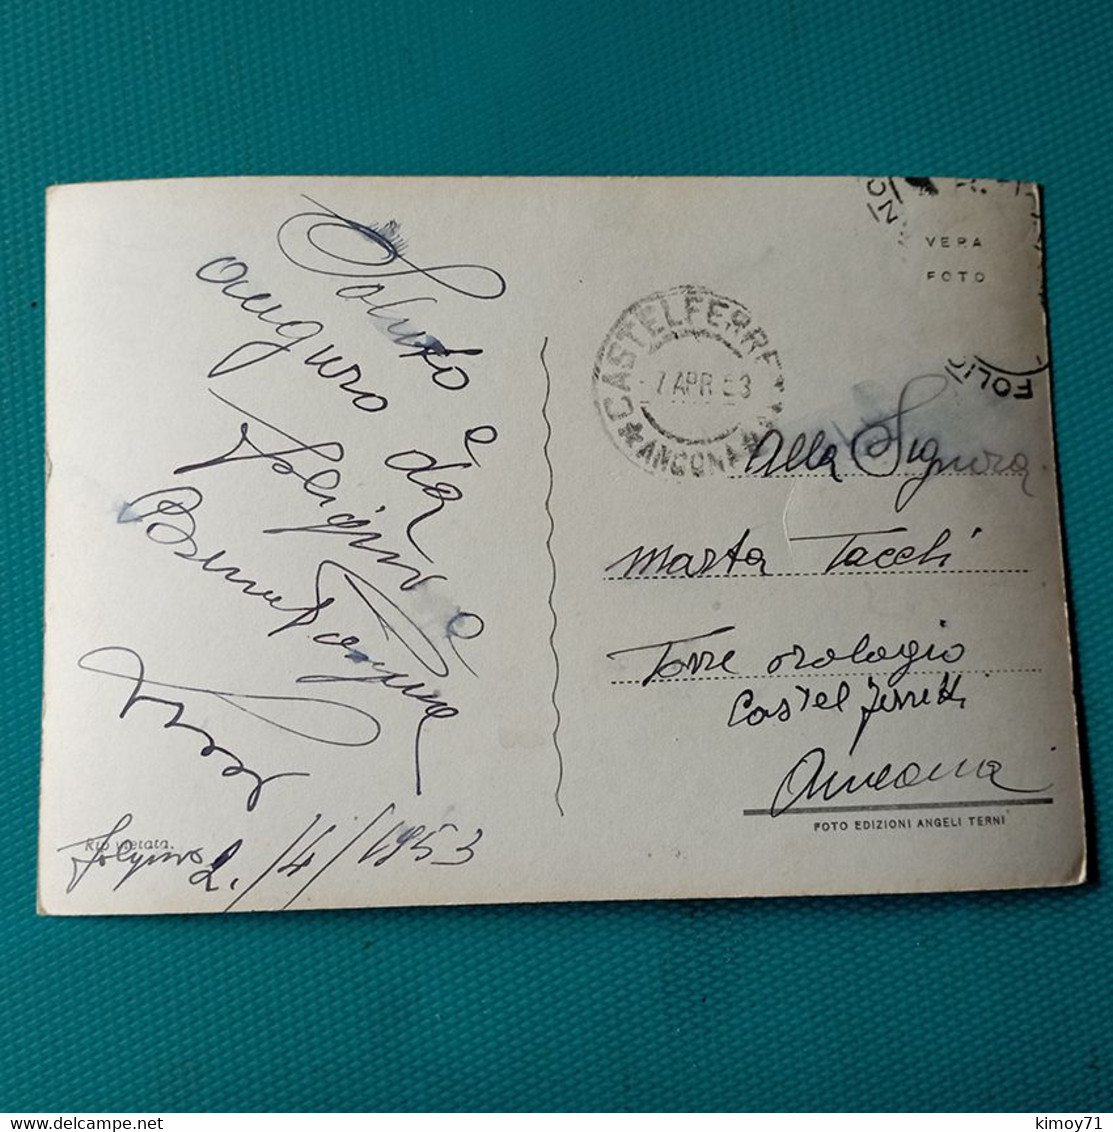 Saluto e
auguro da
Foligno e
Rip. vietata.
Foligno 2./4/1953
VERA
FOTO
FOLIG
CASTELFERRE
7 APR 53
ANCONA
Alla Signora
Marta Tacchi
Torre orologio
Castel ferretti
Ancona
FOTO EDIZIONI ANGELI TERNI
kimoy71